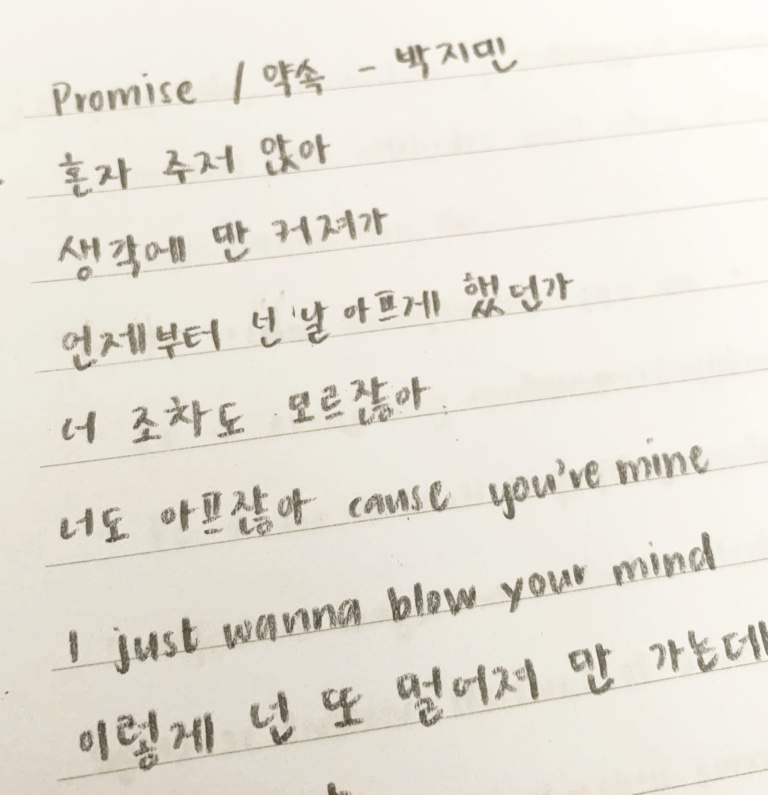 Promise / 약속 - 박지민
혼자 주저 앉아
생각에 만 커져가
언제부터 넌 날 아프게 했던가
너 조차도 모르잖아
너도 아프잖아 cause you're mine
I just wanna blow your mind
이렇게 넌 또 멀어져 만 가는데